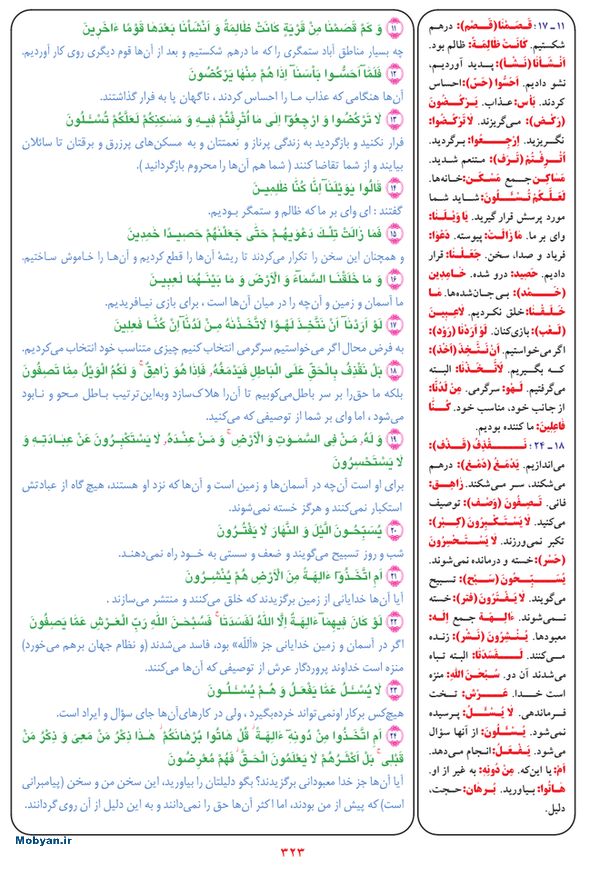 ۱۱ و كَمْ قَصَمْنا مِنْ قَرْيَةٍ كانَتْ ظالِمَةً وَ اَنْشَأْنا بَعْدَها قَوْمًا ءاخَرينَ
چه بسیار مناطق آباد ستمگری را که ما درهم شکستیم و بعد از آن‌ها قوم دیگری روی کار آوردیم.
۱۲ فَلَمّا اَحَسُّوا بَأْسَنا اِذا هُمْ مِنْها يَرْكُضُونَ
آن‌ها هنگامی که عذاب ما را احساس کردند ، ناگهان پا به فرار گذاشتند.
۱۳ لا تَرْكُضُوا وَ ارْجِعُوا اِلى ما اُتْرِفْتُمْ فيهِ وَ مَسكِنِكُمْ لَعَلَّكُمْ تُسْئَلُونَ
فرار نکنید و بازگردید به زندگی پرناز و نعمتتان و به مسکن‌های پرزرق و برقتان تا سائلان
بیایند و از شما تقاضا کنند ( شما هم آن‌ها را محروم بازگردانید ).
۱۴ قالُوا يوَيْلَنا اِنّا كُنّا ظلِمينَ
گفتند : ای وای بر ما که ظالم و ستمگر بودیم.
۱۵ فَما زالَتْ تِلْكَ دَعْويهُمْ حَتّى جَعَلْنهُمْ حَصيدًا خمِدينَ
و همچنان این سخن را تکرار می‌کردند تا ریشهٔ آن‌ها را قطع کردیم و آن‌ها را خاموش ساختیم.
۱۶ وَ ما خَلَقْنَا السَّماءَ وَ الْاَرْضَ وَ ما بَيْنَهُما لعِبينَ
ما آسمان و زمین و آن‌چه را در میان آن‌ها است ، برای بازی نیافریدیم.
۱۷ لَوْ اَرَدْنا اَنْ نَتَّخِذَ لَهْوًا لاتَّخَذْنهُ مِنْ لَدُنّا اِنْ كُنّا فعِلينَ
به فرض محال اگر می‌خواستیم سرگرمی انتخاب کنیم چیزی متناسب خود انتخاب می‌کردیم.
۱۸ بَلْ نَقْذِفُ بِالْحَقِّ عَلَى الْباطِلِ فَيَدْمَغُهُ فَاِذا هُوَ زاهِقٌ وَ لَكُمُ الْوَيْلُ مِمّا تَصِفُونَ
بلکه ما حق را بر سر باطل می‌کوبیم تا آن را هلاک سازد و به این ترتیب باطل محو و نابود
می‌شود ، اما وای بر شما از توصیفی که می‌کنید.
۱۹ وَ لَهُ مَنْ فِي السَّموتِ وَ الْاَرْضِ وَ مَنْ عِنْدَهُ لا يَسْتَكْبِرُونَ عَنْ عِبادَتِهِ وَ
لا يَسْتَحْسِرُونَ
برای او است آن‌چه در آسمان‌ها و زمین است و آن‌ها که نزد او هستند، هیچ گاه از عبادتش
استکبار نمی‌کنند و هرگز خسته نمی‌شوند.
۲۰ يُسَبِّحُونَ الَّيْلَ وَ النَّهارَ لا يَفْتُرُونَ
شب و روز تسبیح می‌گویند و ضعف و سستی به خود راه نمی‌دهند.
۲۱ اَمِ اتَّخَذُوا ءالِهَةً مِنَ الْاَرْضِ هُمْ يُنْشِرُونَ
آیا آن‌ها خدایانی از زمین برگزیدند که خلق می‌کنند و منتشر می‌سازند .
۲۲ لَوْ كانَ فيهِما ءالِهَةٌ اِلَّا اللهُ لَفَسَدَتا فَسُبْحنَ اللهِ رَبِّ الْعَرْشِ عَمّا يَصِفُونَ
اگر در آسمان و زمین خدایانی جز «اَللّه» بود، فاسد می‌شدند (و نظام جهان برهم می‌خورد)
منزه است خداوند پروردگار عرش از توصیفی که آن‌ها می‌کنند.
۲۳ لا يُسْئَلُ عَمّا يَفْعَلُ وَ هُمْ يُسْئَلُونَ
هیچ‌کس برکار او نمی‌تواند خرده‌بگیرد ، ولی در کارهای آن‌ها جای سؤال و ایراد است.
۲۴ اَمِ اتَّخَذُوا مِنْ دُونِهِ ءالِهَةً قُلْ هاتُوا بُرْهانَكُمْ هذا ذِكْرُ مَنْ مَعِيَ وَ ذِكْرُ مَنْ
قَبْلي بَلْ اَكْثَرُهُمْ لا يَعْلَمُونَ الْحَقَّ فَهُمْ مُعْرِضُونَ
آیا آن‌ها جز خدا معبودانی برگزیدند؟ بگو دلیلتان را بیاورید، این سخن من و سخن (پیامبرانی
است) که پیش از من بودند، اما اکثر آن‌ها حق را نمی‌دانند و به این دلیل از آن روی گردانند.
۱۱ ـ ۱۷: قَصَمْنا (قصم): درهم
شکستیم. كانَتْ ظالِمَةً: ظالم بود.
اَنْشَأْنا (نَشْأ): پدید آوردیم،
نشو دادیم. اَحَسُّوا (حَسّ): احساس
کردند. بَأْس: عذاب. يَرْكُضُونَ
(رَكْض): می‌گریزند. لا تَرْكُضُوا:
نگریزید. اِرْجِعُوا: برگردید.
اُتْرِفْتُمْ (تَرَف): متنعم شدید.
مَساكِن: جمع مَسْكَن: خانه‌ها.
لَعَلَّكُمْ تُسْئَلُونَ: شاید شما
مورد پرسش قرار گیرید. يا وَيْلَنا:
وای بر ما. ما زالَتْ: پیوسته. دَعْوا:
فریاد و صدا، سخن. جَعَلْنا: قرار
دادیم. حَصيد: درو شده. خامِدين
(خَمْد): بی‌جان‌شده‌ها. ما
خَلَقْنا: خلق نکردیم. لاعِبينَ
(لَعْب): بازی‌کنان. لَوْ اَرَدْنا (رَوْد):
اگر می‌خواستیم. اَنْ نَتَّخِذَ (اَخْذ):
که بگیریم. لاَتَّخَذْنا: البته
می‌گرفتیم. لَهْو: سرگرمی. مِنْ لَدُنّا:
از جانب خود، مناسب خود. كُنّا
فاعِلينَ: ما کننده بودیم.
۱۸ ـ ۲۴: نَقْذِفُ (قَذْف):
می‌اندازیم. يَدْمَغُ (دَمْغ): درهم
می‌شکند، سر می‌شکند. زاهِق:
فانی. تَصِفُونَ (وَصْف): توصیف
می‌کنید. لا يَسْتَكْبِرُونَ (كِبْر):
تکبر نمی‌ورزند. لا يَسْتَحْسِرُونَ
(حَسْر): خسته و درمانده نمی‌شوند.
يُسَبِّحُونَ (سَبْح): تسبیح
می‌گویند. لا يَفْتُرُونَ (فتر): خسته
نمی‌شوند. ءالِهَة جمع اِله:
معبودها. يُنْشِرُونَ (نَشْر): زنده
می‌کنند. لَفَسَدَتا: البته تباه
می‌شدند آن دو. سُبْحنَ اللهِ: منزه
است خدا. عَرْش: تخت
فرماندهی. لا يُسْئَلُ: پرسیده
نمی‌شود. يُسْئَلُونَ: از آنها سؤال
می‌شود. يَفْعَلُ: انجام می‌دهد.
اَمْ: یا این‌که. مِنْ دُونِهِ: به غیر از او.
هاتُوا: بیاورید. بُرْهان: حجت،
دلیل.
Mobyan.ir
۳۲۳